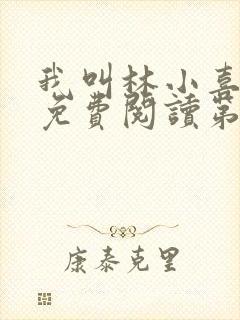 我叫林小喜
免費閱讀第
康泰克里